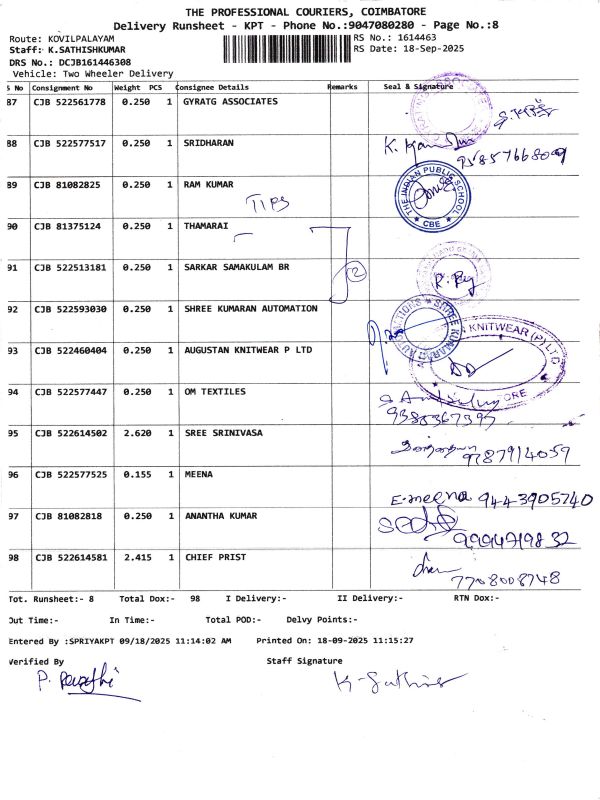 THE PROFESSIONAL COURIERS, COIMBATORE
Delivery Runsheet - KPT - Phone No.:9047080280 - Page No.:8
Route: KOVILPALAYAM RS No.: 1614463
Staff: K.SATHISHKUMAR RS Date: 18-Sep-2025
DRS No.: DCJB161446308
Vehicle: Two Wheeler Delivery
S No Consignment No Weight PCS Consignee Details Remarks Seal & Signature
87 CJB 522561778 0.250 1 GYRATG ASSOCIATES
88 CJB 522577517 0.250 1 SRIDHARAN
9585766809
89 CJB 81082825 0.250 1 RAM KUMAR
TIPS
THE INDIAN PUBLIC SCHOOL
CBE
90 CJB 81375124 0.250 1 THAMARAI
91 CJB 522513181 0.250 1 SARKAR SAMAKULAM BR
2
92 CJB 522593030 0.250 1 SHREE KUMARAN AUTOMATION
93 CJB 522460404 0.250 1 AUGUSTAN KNITWEAR P LTD
KNITWEAR (P) LTD
94 CJB 522577447 0.250 1 OM TEXTILES
9380367397
95 CJB 522614502 2.620 1 SREE SRINIVASA
9787914059
96 CJB 522577525 0.155 1 MEENA
E.meena 9443905740
97 CJB 81082818 0.250 1 ANANTHA KUMAR
9994719832
98 CJB 522614581 2.415 1 CHIEF PRIST
7708008748
Tot. Runsheet:- 8 Total Dox:- 98 I Delivery:- II Delivery:- RTN Dox:-
Out Time:- In Time:- Total POD:- Delvy Points:-
Entered By :SPRIYAKPT 09/18/2025 11:14:02 AM Printed On: 18-09-2025 11:15:27
Verified By Staff Signature
P. Revathi